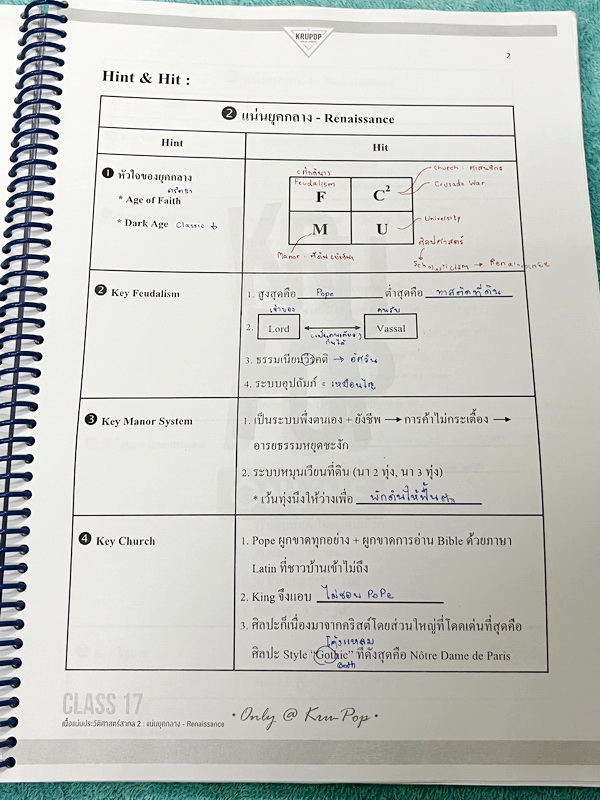 KRUPOP
2
Hint & Hit :
❷ แน่นยุคกลาง - Renaissance
Hint
Hit
❶ หัวใจของยุคกลาง
ศรัทธา
* Age of Faith
* Dark Age Classic ↓
(ศักดินา)
Feudalism
F
C²
M
U
Church : ศาสนจักร
Crusade War
University
ศิลปศาสตร์
Scholasticism → Renaissance
❷ Key Feudalism
1. สูงสุดคือ Pope ต่ำสุดคือ ทาสติดที่ดิน
เจ้าของ
คนรับ
2. Lord ⟷ Vassal
3. ธรรมเนียมวีรคติ → อัศวิน
4. ระบบอุปถัมภ์ = เหมือนไทย
❸ Key Manor System
1. เป็นระบบพึ่งตนเอง + ยังชีพ → การค้าไม่กระเตื้อง →
อารยธรรมหยุดชะงัก
2. ระบบหมุนเวียนที่ดิน (นา 2 ทุ่ง, นา 3 ทุ่ง)
* เว้นทุ่งนึงให้ว่างเพื่อ พักดินให้ฟื้นตัว
❹ Key Church
1. Pope ผูกขาดทุกอย่าง + ผูกขาดการอ่าน Bible ด้วยภาษา
Latin ที่ชาวบ้านเข้าไม่ถึง
2. King จึงแอบ ไม่ชอบ Pope
3. ศิลปะก็เนื่องมาจากคริสต์โดยส่วนใหญ่ที่โดดเด่นที่สุดคือ
โค้งแหลม
ศิลปะ Style "Gothic" ที่ดังสุดคือ Nôtre Dame de Paris
Goth
CLASS 17
เนื้อแน่นประวัติศาสตร์สากล 2 : แน่นยุคกลาง - Renaissance
• Only @ Kru Pop •